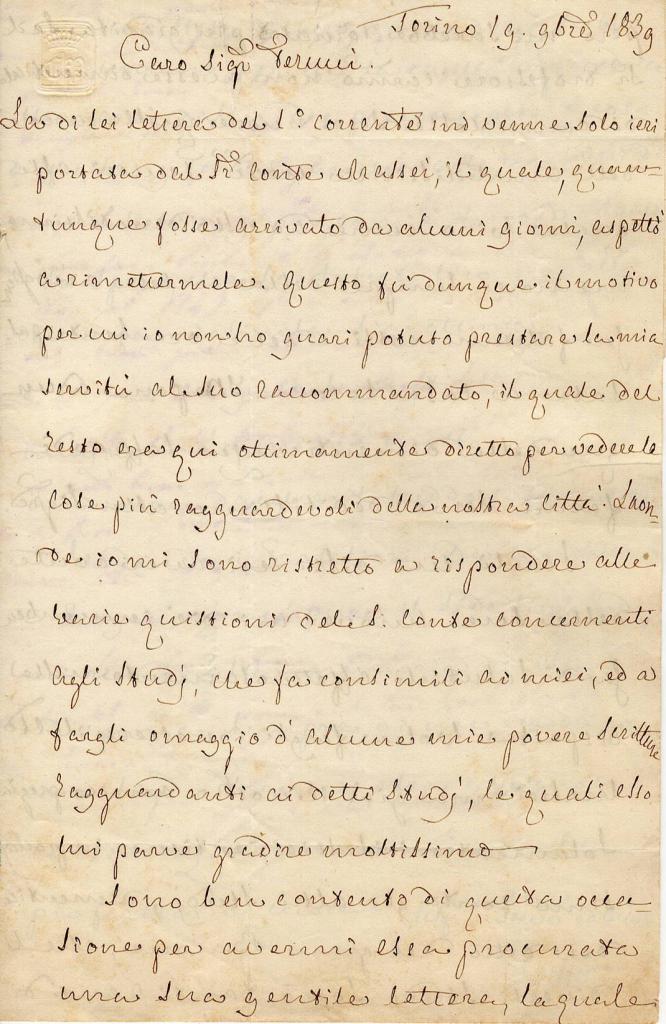 Torino 19. 9bre 1839
Caro Sigr
La di lei lettera del 1.° corrente mi venne solo ieri
portata dal Sr. Conte Massei, il quale, quan-
tunque fosse arrivato da alcuni giorni, aspettò
a rimettermela. Questo fù dunque il motivo
per cui io non ho guari potuto prestare la mia
servitù al suo raccommandato, il quale del
resto era qui ottimamente diretto per vedere le
cose più ragguardevoli della nostra Città. Laon-
de io mi sono ristretto a rispondere alle
varie quistioni del S. Conte concernenti
agli Studj, che fa consimili ai miei, ed a
fargli omaggio d'alcune mie povere scritture
ragguardanti ai detti Studj, le quali esso
mi parve gradire moltissimo
Sono ben contento di questa occa-
sione per avermi essa procurata
una sua gentile lettera, la quale